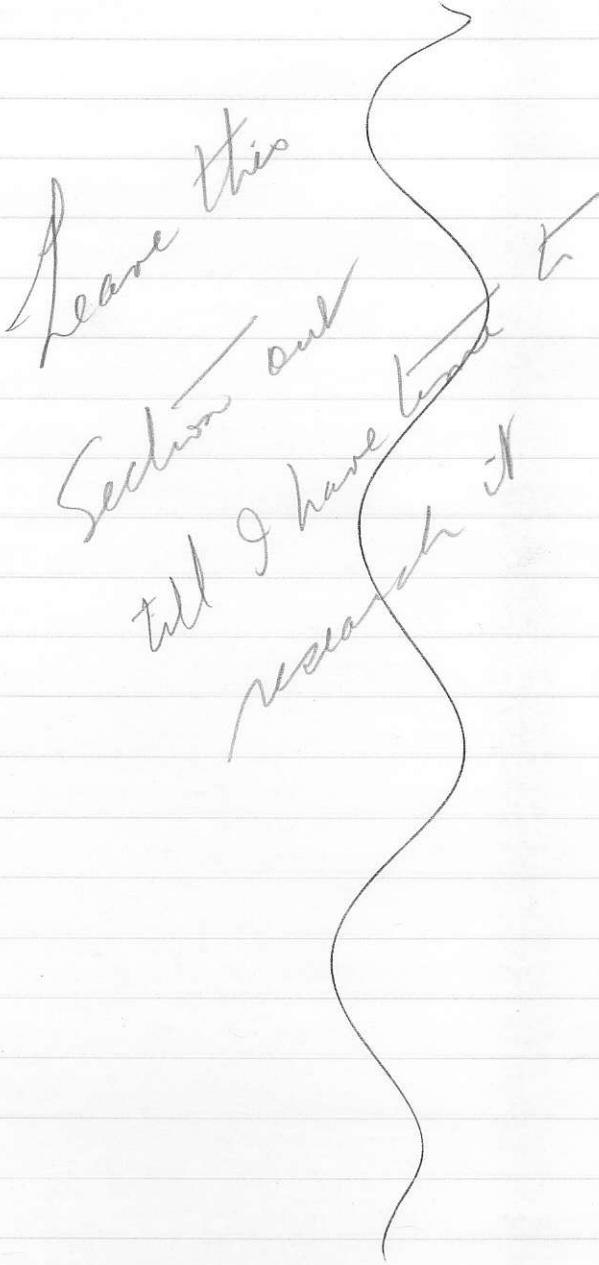 Leave this
Section out
till I have time to
research it